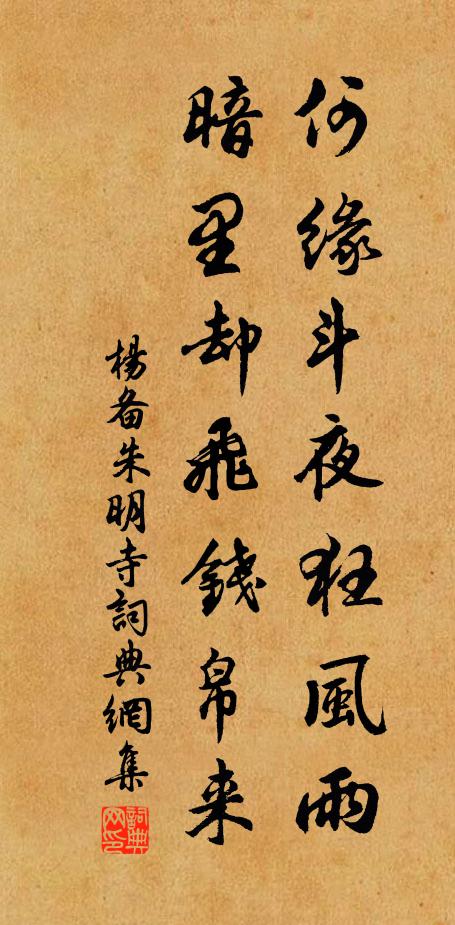 何缘斗夜狂風雨
暗里却飛錢帛来
楊备朱明寺詞典網集
詞典网印